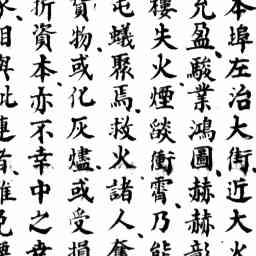 本埠左治大街近大火
兌盈、駿業鴻圖、赫赫彰
樓失火、煙燄衝霄、乃能
屯蟻聚焉、救火諸人、奮
貨物、或化灰燼、或受損
折資本、亦不幸中之幸
相與此連者、雖免